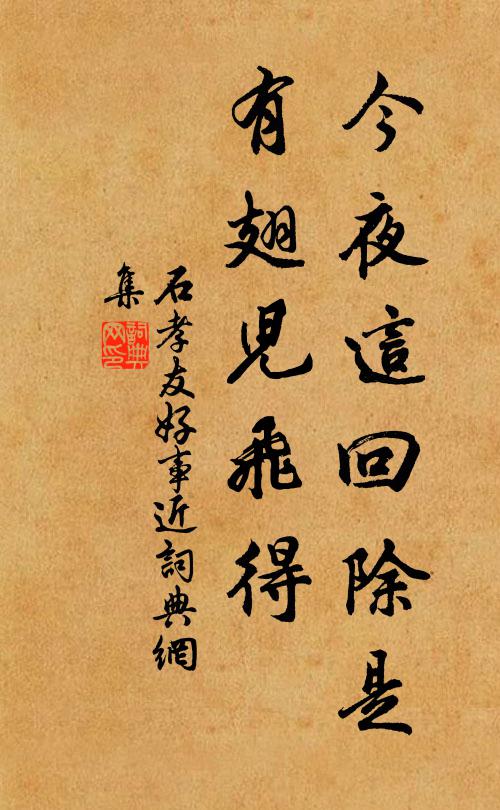 今夜這回除是
有翅兒飛得
石孝友好事近詞典網
集
詞典
网印